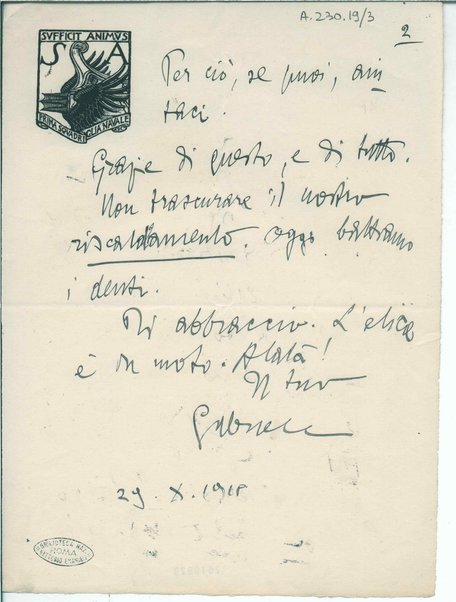 A.230.19/3
2
SVFFICIT ANIMVS
S A
PRIMA SQVADRIGLIA NAVALE
Per ciò, se puoi, aiu
taci.
Grazie di questo, e di tutto.
Non trascurare il nostro
riscaldamento. Oggi battiamo
i denti.
Ti abbraccio. L'elica
è in moto. Alalà!
Il tuo
Gabriele
29. X. 1918
BIBLIOTECA NAZ.
ROMA
VITTORIO EMANUELE